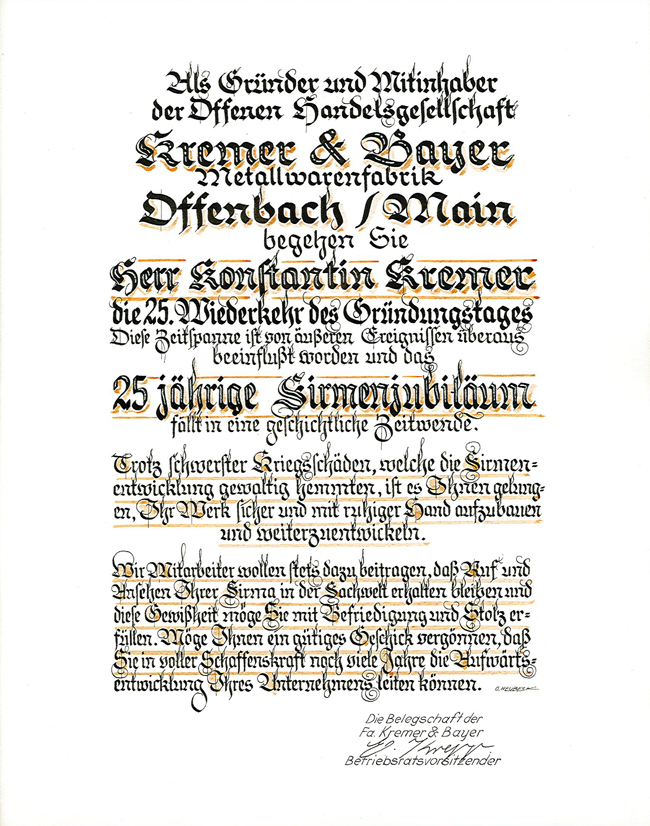 Als Gründer und Mitinhaber
der Offenen Handelsgesellschaft
Kremer & Bayer
Metallwarenfabrik
Offenbach / Main
begehen Sie
Herr Konstantin Kremer
die 25. Wiederkehr des Gründungstages
Diese Zeitspanne ist von äußeren Ereignissen überaus
beeinflußt worden und das
25 jährige Firmenjubiläum
fällt in eine geschichtliche Zeitwende.
Trotz schwerster Kriegsschäden, welche die Firmen=
entwicklung gewaltig hemmten, ist es Ihnen gelung=
en, Ihr Werk sicher und mit ruhiger Hand aufzubauen
und weiterzuentwickeln.
Wir Mitarbeiter wollen stets dazu beitragen, daß Ruf und
Ansehen Ihrer Firma in der Fachwelt erhalten bleiben und
diese Gewißheit möge Sie mit Befriedigung und Stolz er-
füllen. Möge Ihnen ein gütiges Geschick vergönnen, daß
Sie in voller Schaffenskraft noch viele Jahre die Aufwärts=
entwicklung Ihres Unternehmens leiten können.
Die Belegschaft der
Fa. Kremer & Bayer
Betriebsratsvorsitzender